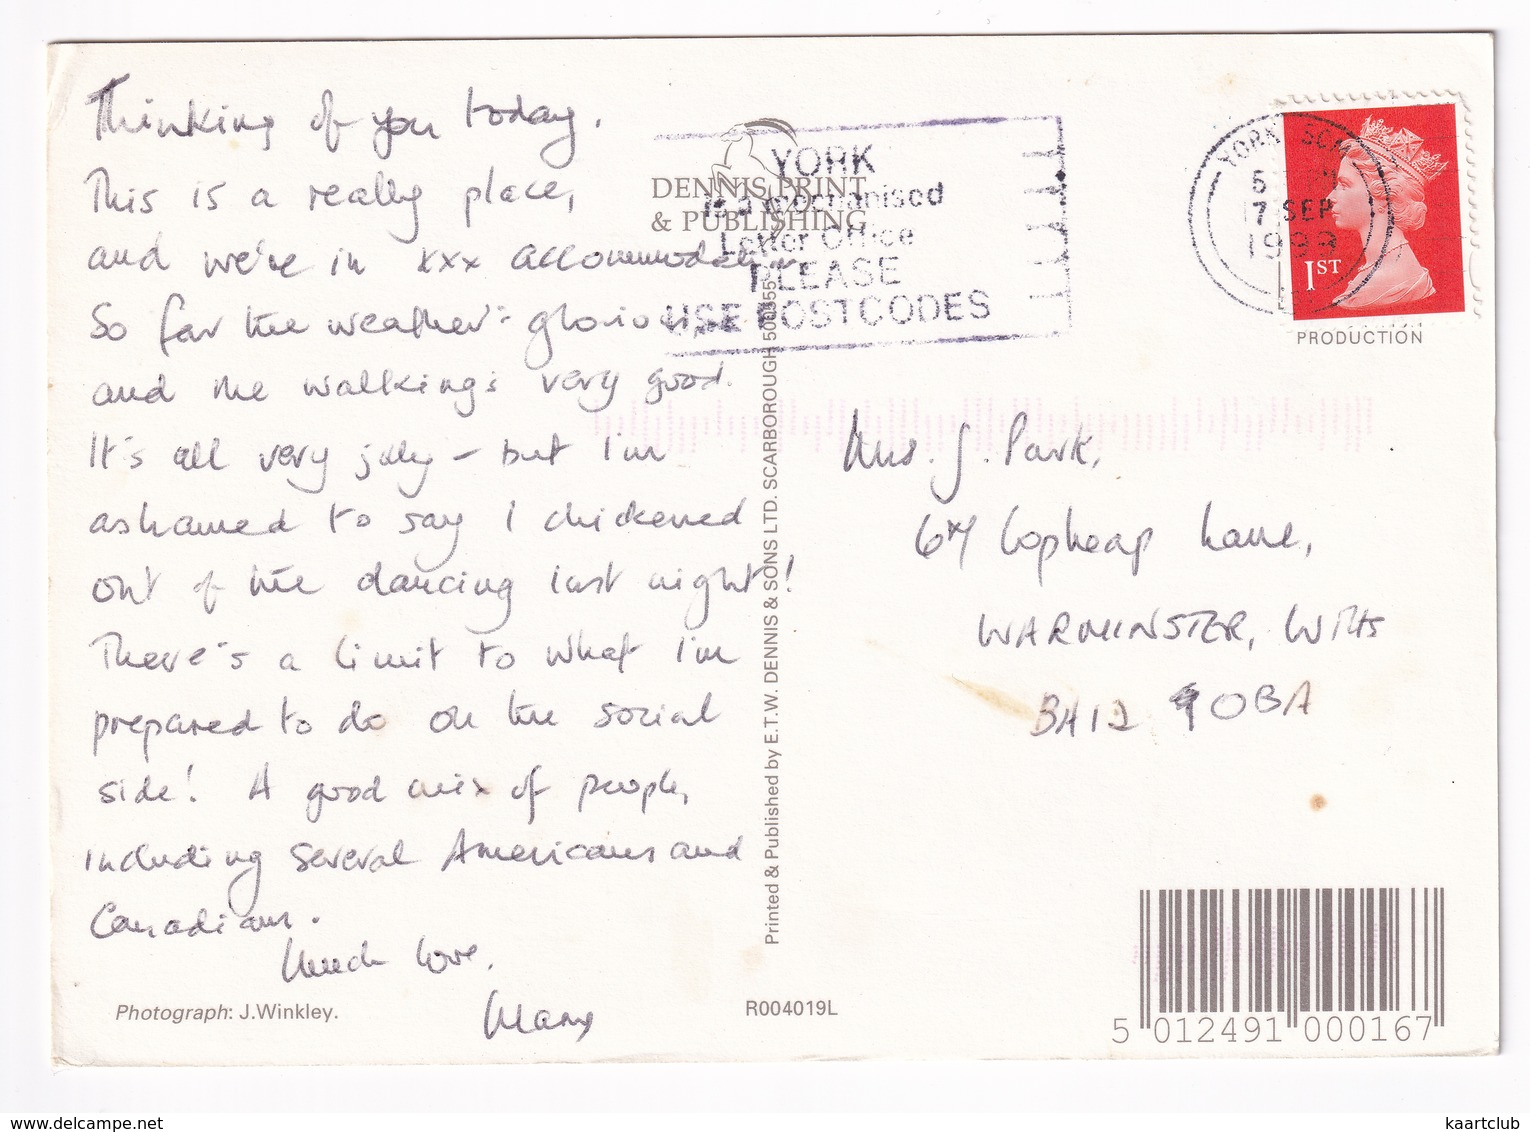 Thinking of you today.
This is a really place,
and we're in xxx accommodation.
So far the weather's glorious,
and the walking's very good.
It's all very jolly – but I'm
ashamed to say I chickened
out of the dancing last night!
There's a limit to what I'm
prepared to do on the social
side! A good mix of people,
including several Americans and
Canadians.
Much love,
Mary
Photograph: J.Winkley.
DENNIS PRINT
& PUBLISHING
YORK
is a mechanised
Letter Office
PLEASE
USE POSTCODES
Printed & Published by E.T.W. DENNIS & SONS LTD. SCARBOROUGH 500555
R004019L
YORK SCM
SEP
1ST
PRODUCTION
Mrs. J. Park,
Copheap Lane,
WARMINSTER, Wilts
BA12 0BA
5 012491 000167
kaartclub